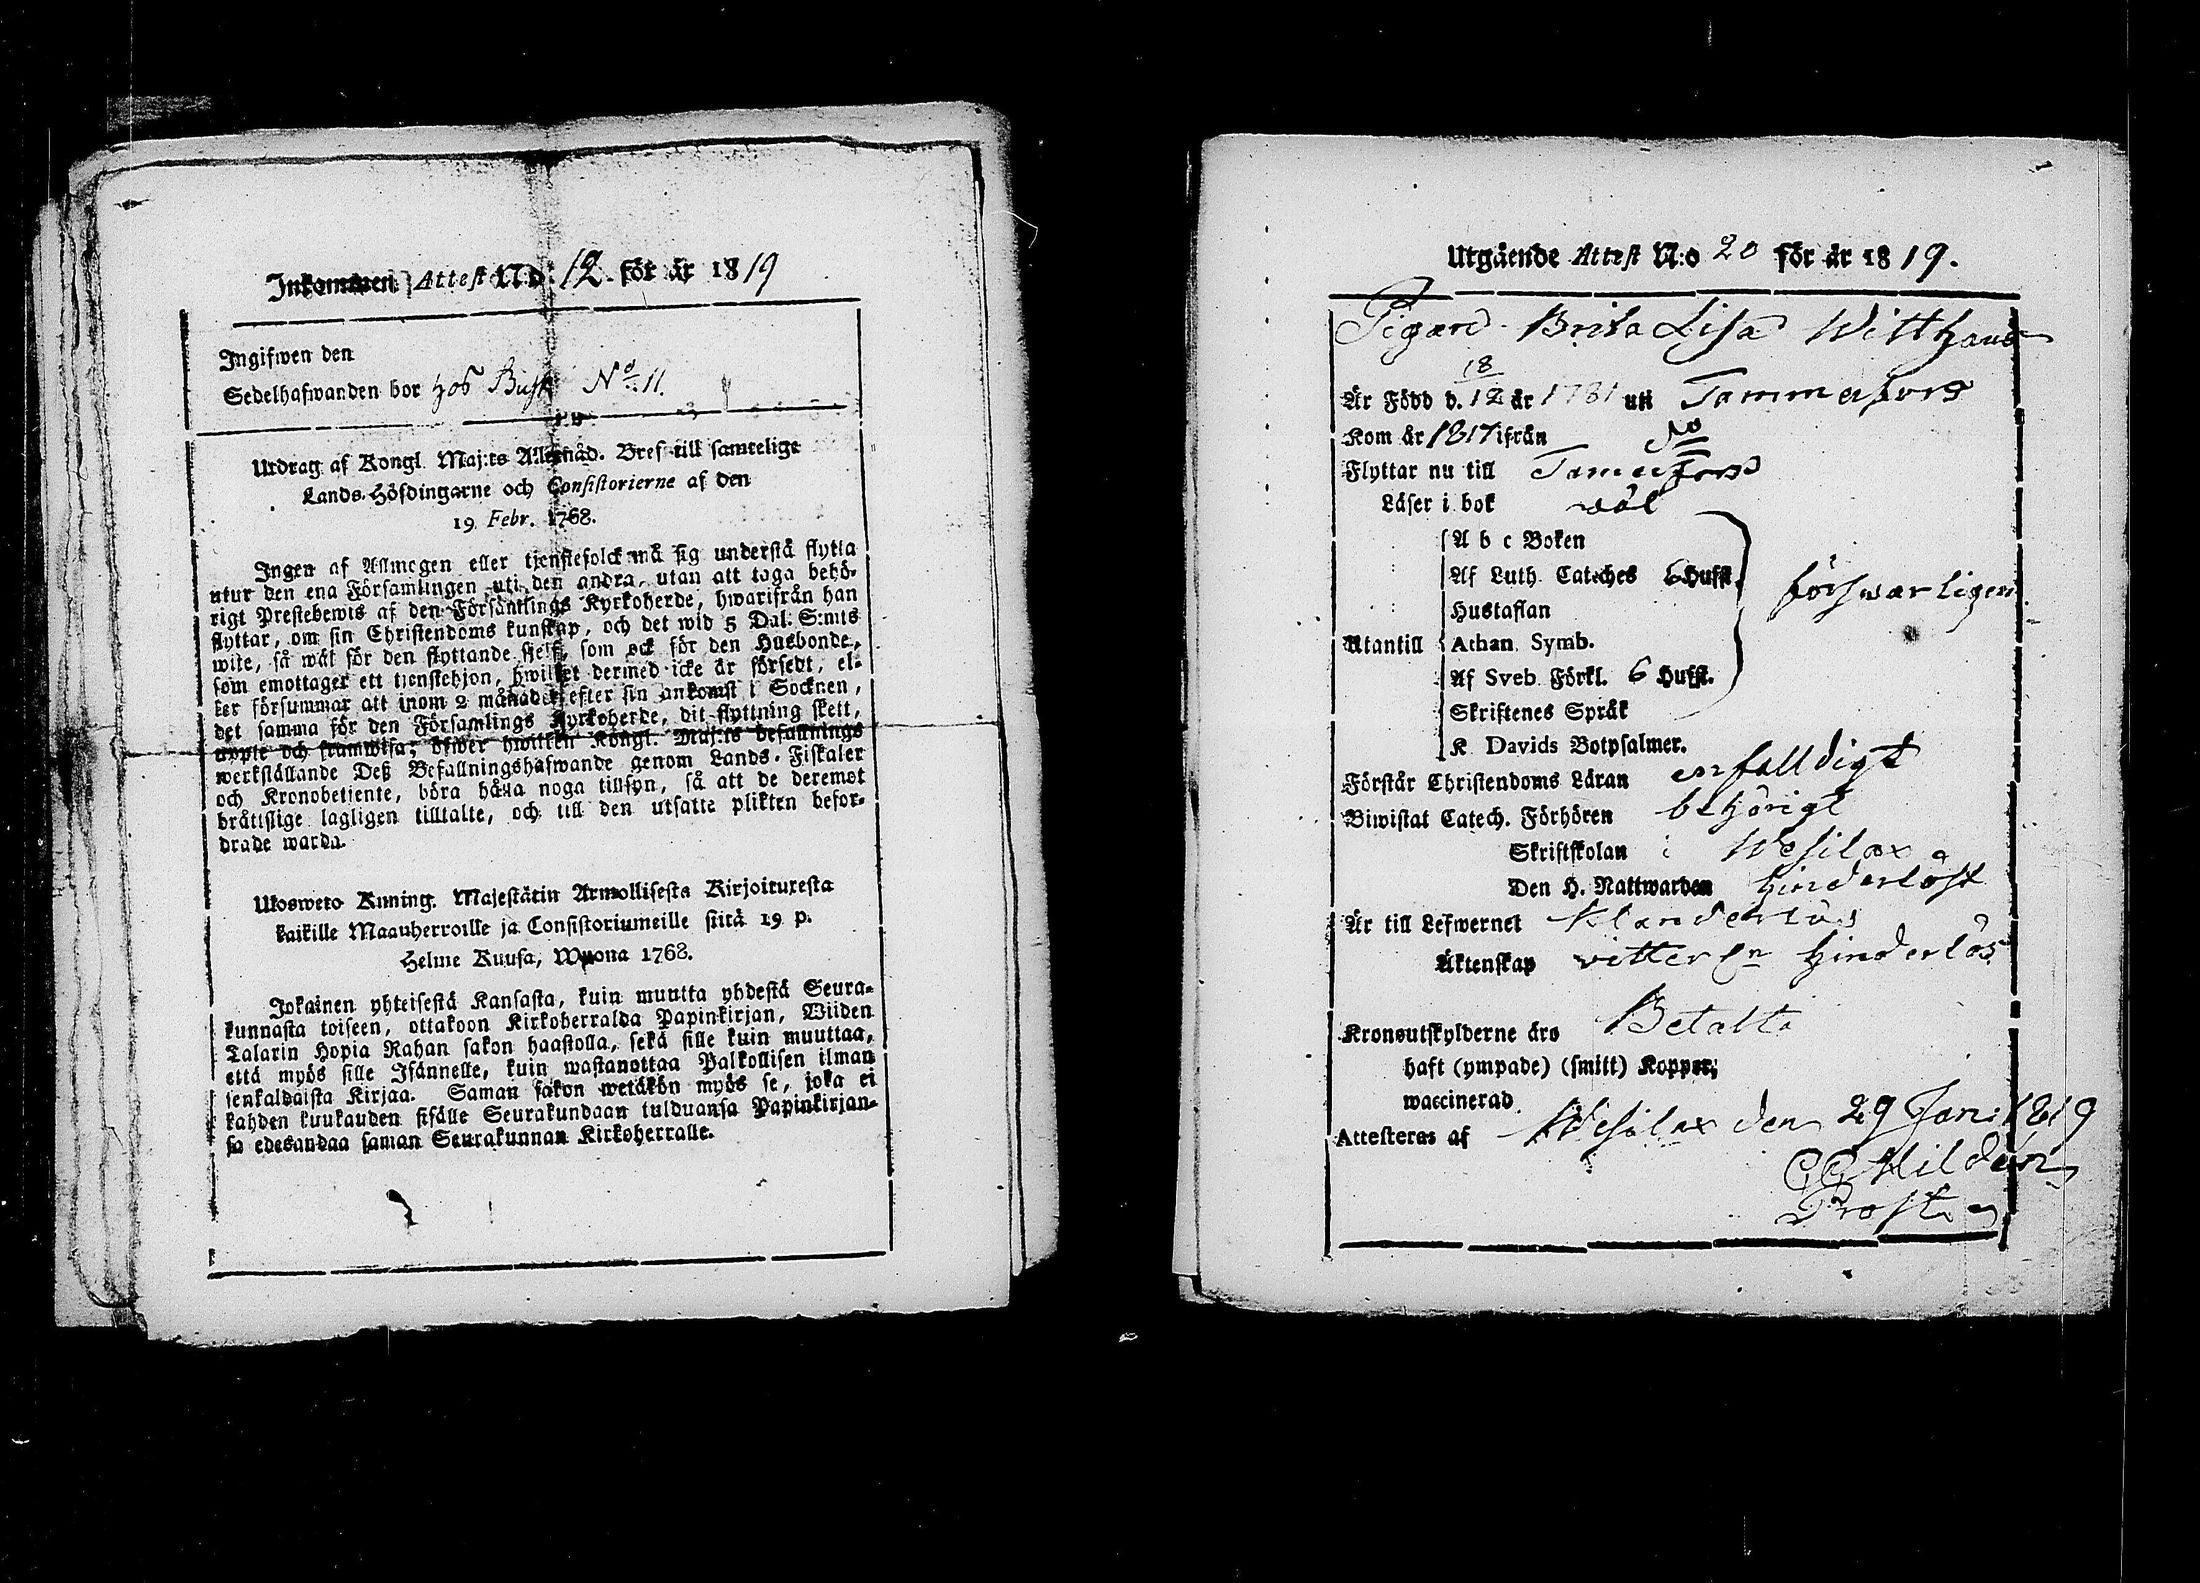 Inkommen Attest N:o 12 för år 1819
Ingifwen den
Sedelhafwanden bor hos Busk N:o 11.
Utdrag af Kongl. Maj:ts Allernåd. Bref till samtelige
Lands-Höfdingarne och Consistorierne af den
19 Febr. 1768.
Ingen af Allmogen eller tjenstefolck må sig understå flytta
utur den ena Församlingen uti den andra, utan att taga behö-
rigt Prestebewis af den Församlings Kyrkoherde, hwarifrån han
flyttar, om sin Christendoms kunskap, och det wid 5 Dal: S:mts
wite, så wäl för den flyttande sjelf, som ock för den Husbonde,
som emottager ett tjenstehjon, hwilket dermed icke är försedt, el-
ler försummar att inom 2 månader efter sin ankomst i Socknen,
det samma för den Församlings Kyrkoherde, dit flyttning skett,
uppte och framwisa; öfwer hwilken Kongl. Maj:ts befallnings
werkställande Deß Befallningshafwande genom Lands-Fiskaler
och Kronobetjente, böra hålla noga tillsyn, så att de deremot
bråttslige lagligen tilltalte, och till den utsatte plikten befor-
drade warda.
Ulosweto Kuning. Majestätin Armollisesta Kirjoituxesta
kaikille Maanherroille ja Consistoriumeille siitä 19 p.
Helme Kuusa, Wuona 1768.
Jokainen yhteisestä Kansasta, kuin muutta yhdestä Seura-
kunnasta toiseen, ottakoon Kirkoherralda Papinkirjan, Wiiden
Talarin Hopia Rahan sakon haastolla, sekä sille kuin muuttaa,
että myös sille Isännelle, kuin wastanottaa Palkollisen ilman
senkaldaista Kirjaa. Saman sakon wetäkön myös se, joka ei
kahden kuukauden sisälle Seurakundaan tulduansa Papinkirjan-
sa edesandaa saman Seurakunnan Kirkoherralle.
Utgående Attest N:o 20 för år 1819.
Pigan Brita Lisa Witthans
18
Är Född d. 12 år 1781 uti Tammerfors
Kom år 1817 ifrån do
Flyttar nu till Tamerfors
Läser i bok wäl
A b c Boken
Af Luth. Cateches 6 Hufst.
försvarligen
Hustaflan
Utantill Athan. Symb.
Af Sveb. Förkl. 6 Hufst.
Skriftenes Språk
K. Davids Botpsalmer.
Förstår Christendoms Läran enfalldigt
Biwistat Catech. Förhören behörigt
Skriftskolan i Wesilax
Den H. Nattwarden hinderlöst
Är till Lefwernet klanderlös
Äktenskap vitterl:n hinderlös
Kronoutskylderne äro Betalte
haft (ympade) (smitt) Koppor;
waccinerad
Attesteras af Wesilax den 29 Jan: 1819
Hildén
Prost